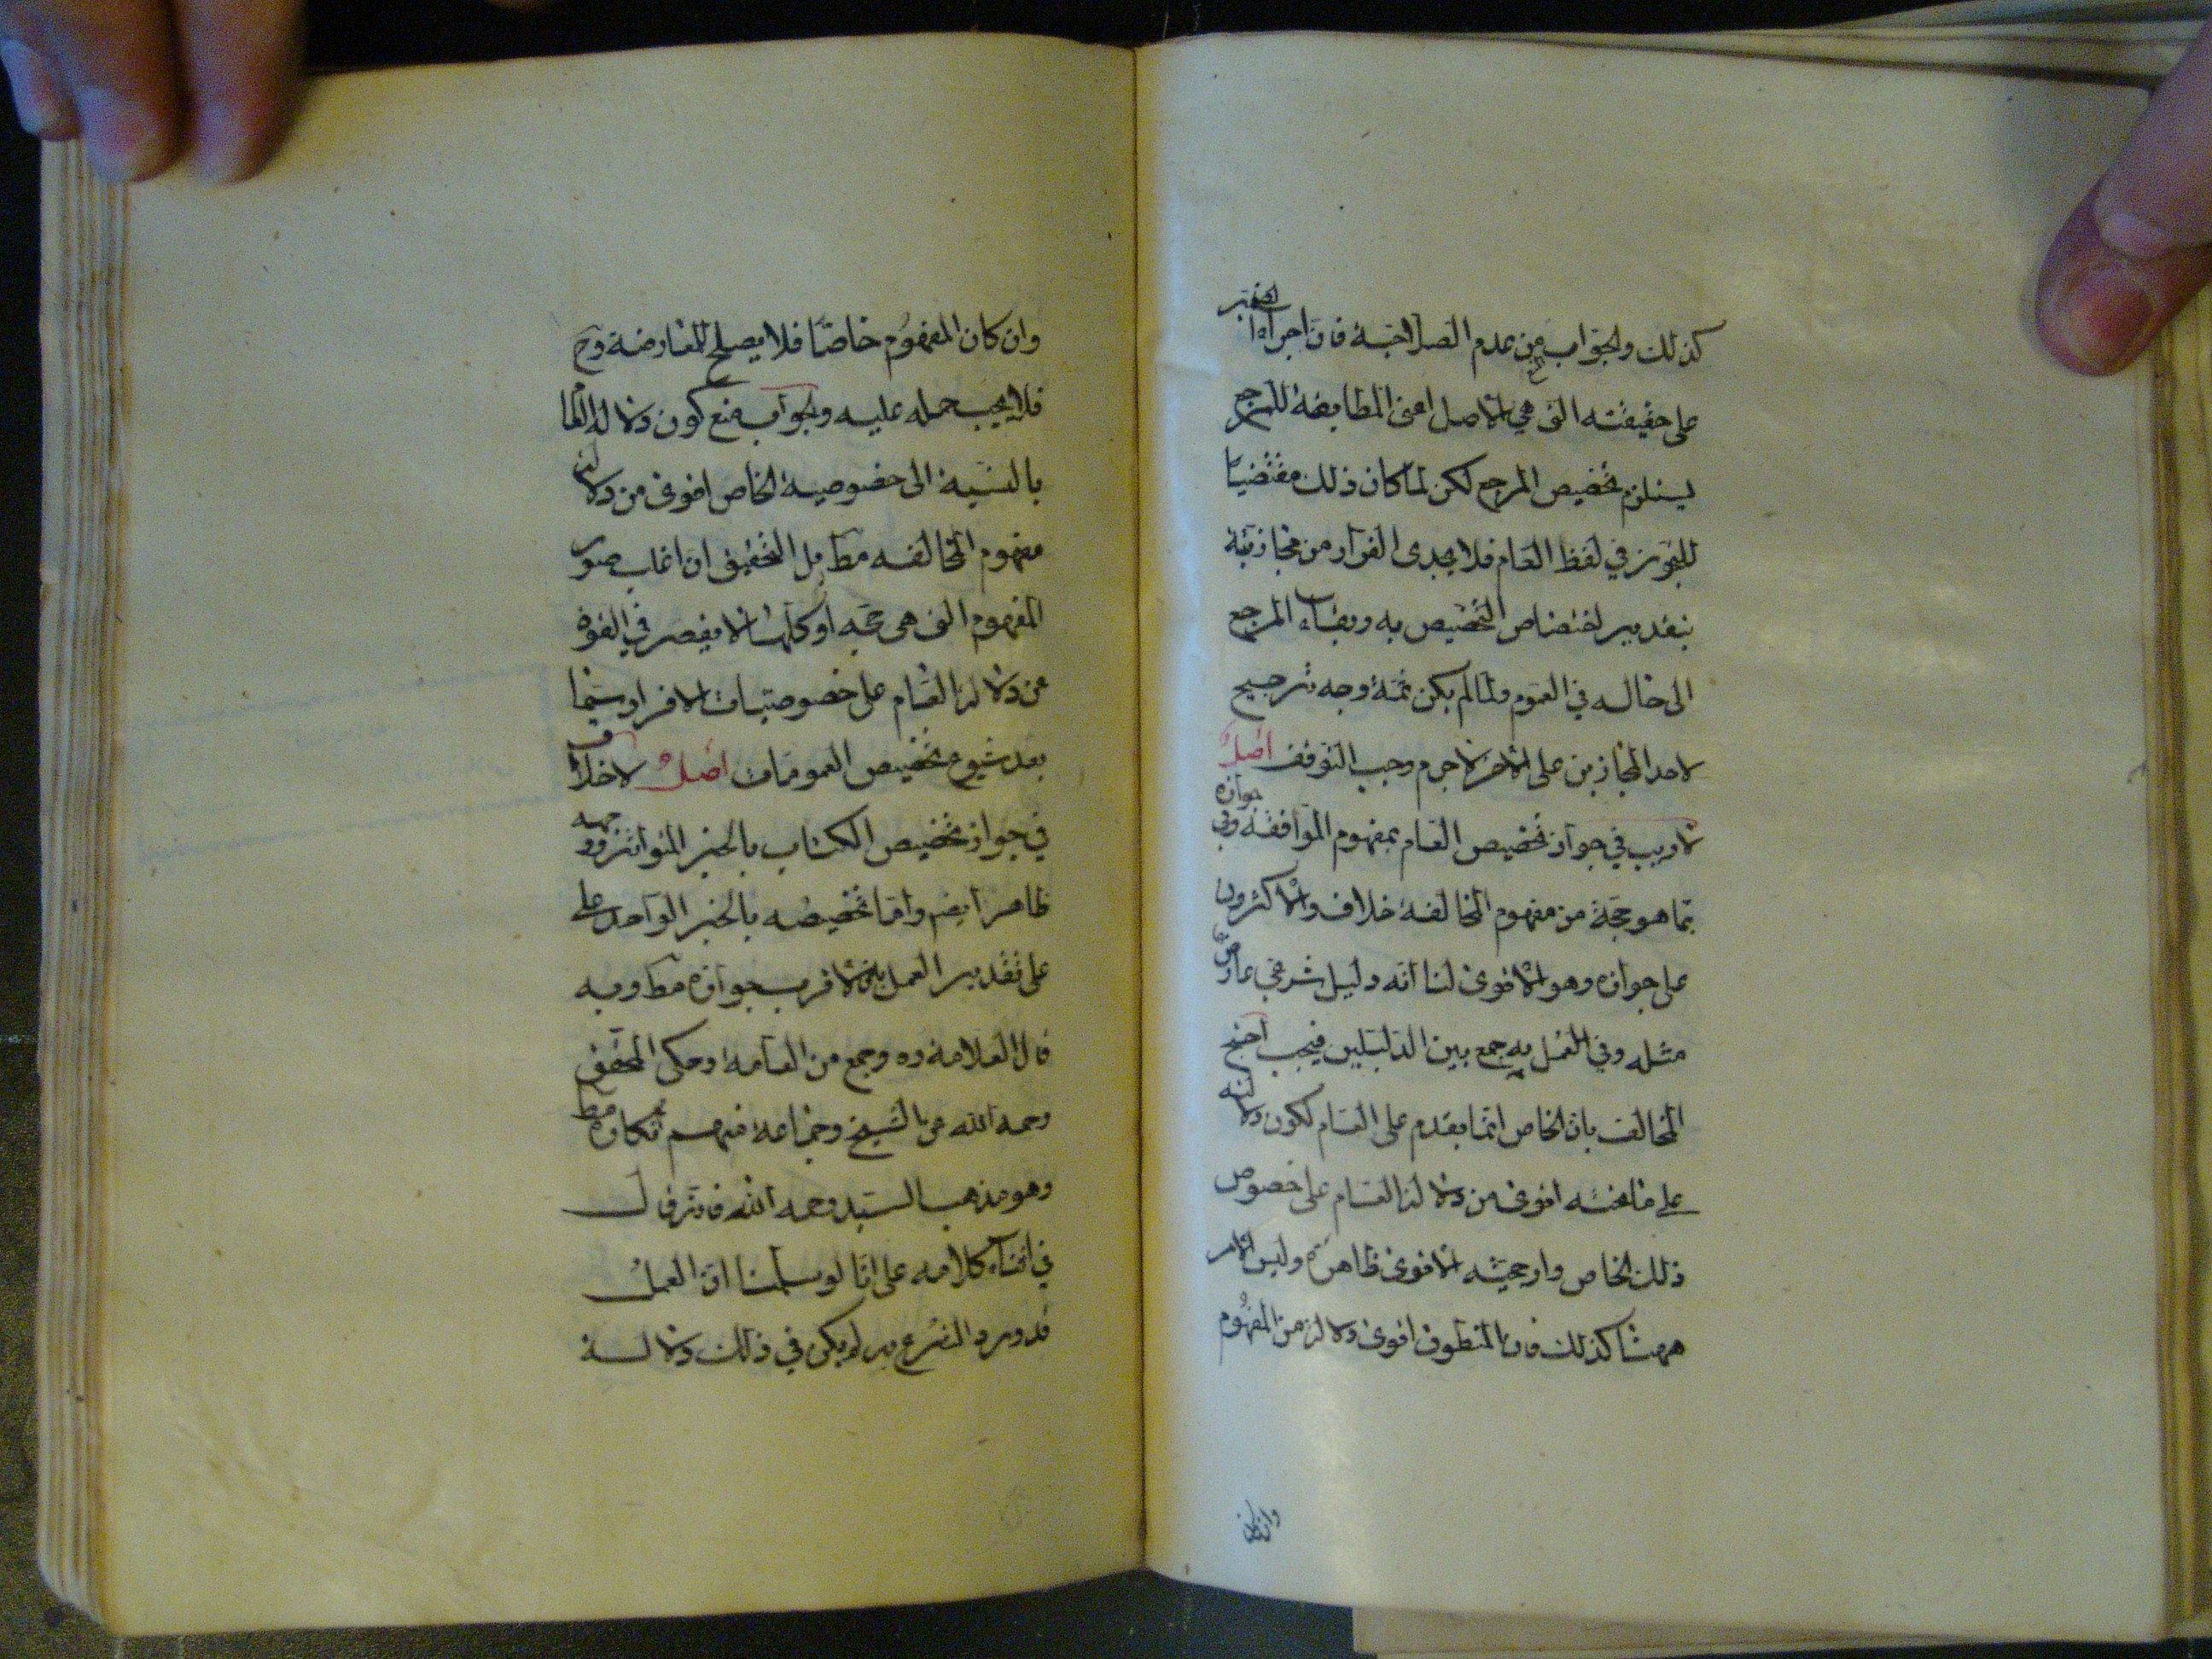 كذلك والجواب منع عدم الصلاحية فان اجراء الضمير
على حقيقته التي هي الاصل اعني المطابقة للمرجع
يستلزم تخصيص المرجع لكن لما كان ذلك مقتضيا
للتجوز في لفظ العام فلا يجدي الفرار من مجازية
بتقدير اختصاص التخصيص به وبقاء المرجع
الى حاله في العموم ولما لم يكن ثمة وجه ترجيح
لاحد المجازين على الاخر لا جرم وجب التوقف اصل
لا ريب في جواز تخصيص العام بمفهوم الموافقة وفي جوازه
بما هو حجة من مفهوم المخالفة خلاف والاكثرون
على جوازه وهو الاقوى لنا انه دليل شرعي عارض
مثله وفي العمل به جمع بين الدليلين فيجب احتج
المخالف بان الخاص انما يقدم على العام لكون دلالته
على ما تحته اقوى من دلالة العام على خصوص
ذلك الخاص وارجحيته الاقوى ظاهرة وليس الامر
ههنا كذلك فان المنطوق اقوى دلالة من المفهوم
وان كان
وان كان المفهوم خاصا فلا يصلح لمعارضته وح
فلا يجب حمله عليه والجواب منع كون دلالة العام
بالنسبة الى خصوصية الخاص اقوى من دلالة
مفهوم المخالفه مط بل التحقيق ان اغلب صور
المفهوم التي هي حجه او كلها لا يقصر في القوة
عن دلالة العام على خصوصيات الافراد سيما
بعد شيوع تخصيص العمومات اصل لا خلاف
في جواز تخصيص الكتاب بالخبر المتواتر ووجهه
ظاهر ايضم واما تخصيصه بالخبر الواحد على
على تقدير العمل به فالاقرب جوازه مط وبه
قال العلامة ره وجمع من العامه وحكى المحقق
رحمه الله عن الشيخ وجماعة منهم انكاره مط
وهو مذهب السيد رحمه الله فانه قال
في اثناء كلامه على انا لو سلمنا ان العمل
قد ورد الشرع به لم يكن في ذلك دلالة